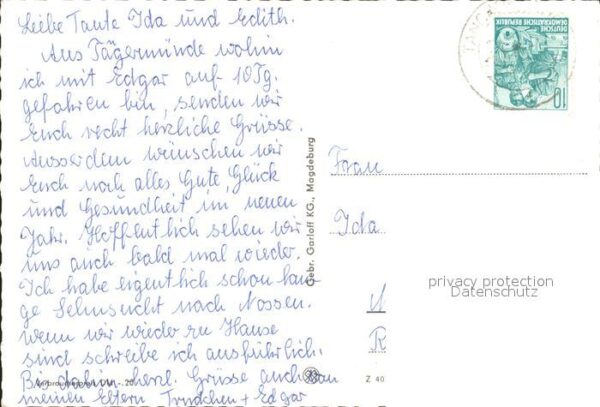 Liebe Tante Ida und Edith.
Aus Tägermünde wohin
ich mit Edgar auf 10 Tg.
gefahren bin, senden wir
Euch recht herzliche Grüsse.
Ausserdem wünschen wir
Euch noch alles Gute, Glück
und Gesundheit im neuen
Jahr. Hoffentlich sehen wir
uns auch bald mal wieder.
Ich habe eigentlich schon lan-
ge Sehnsucht nach Nossen.
wenn wir wieder zu Hause
sind schreibe ich ausführlich.
Bis dahin herzl. Grüsse auch von
meinen Eltern Trudchen + Edgar
Verbraucherpreis DM -.20
Gebr. Garloff KG., Magdeburg
Z 40
DEUTSCHE
DEMOKRATISCHE REPUBLIK
10
Frau
Ida
N
R
privacy protection
Datenschutz